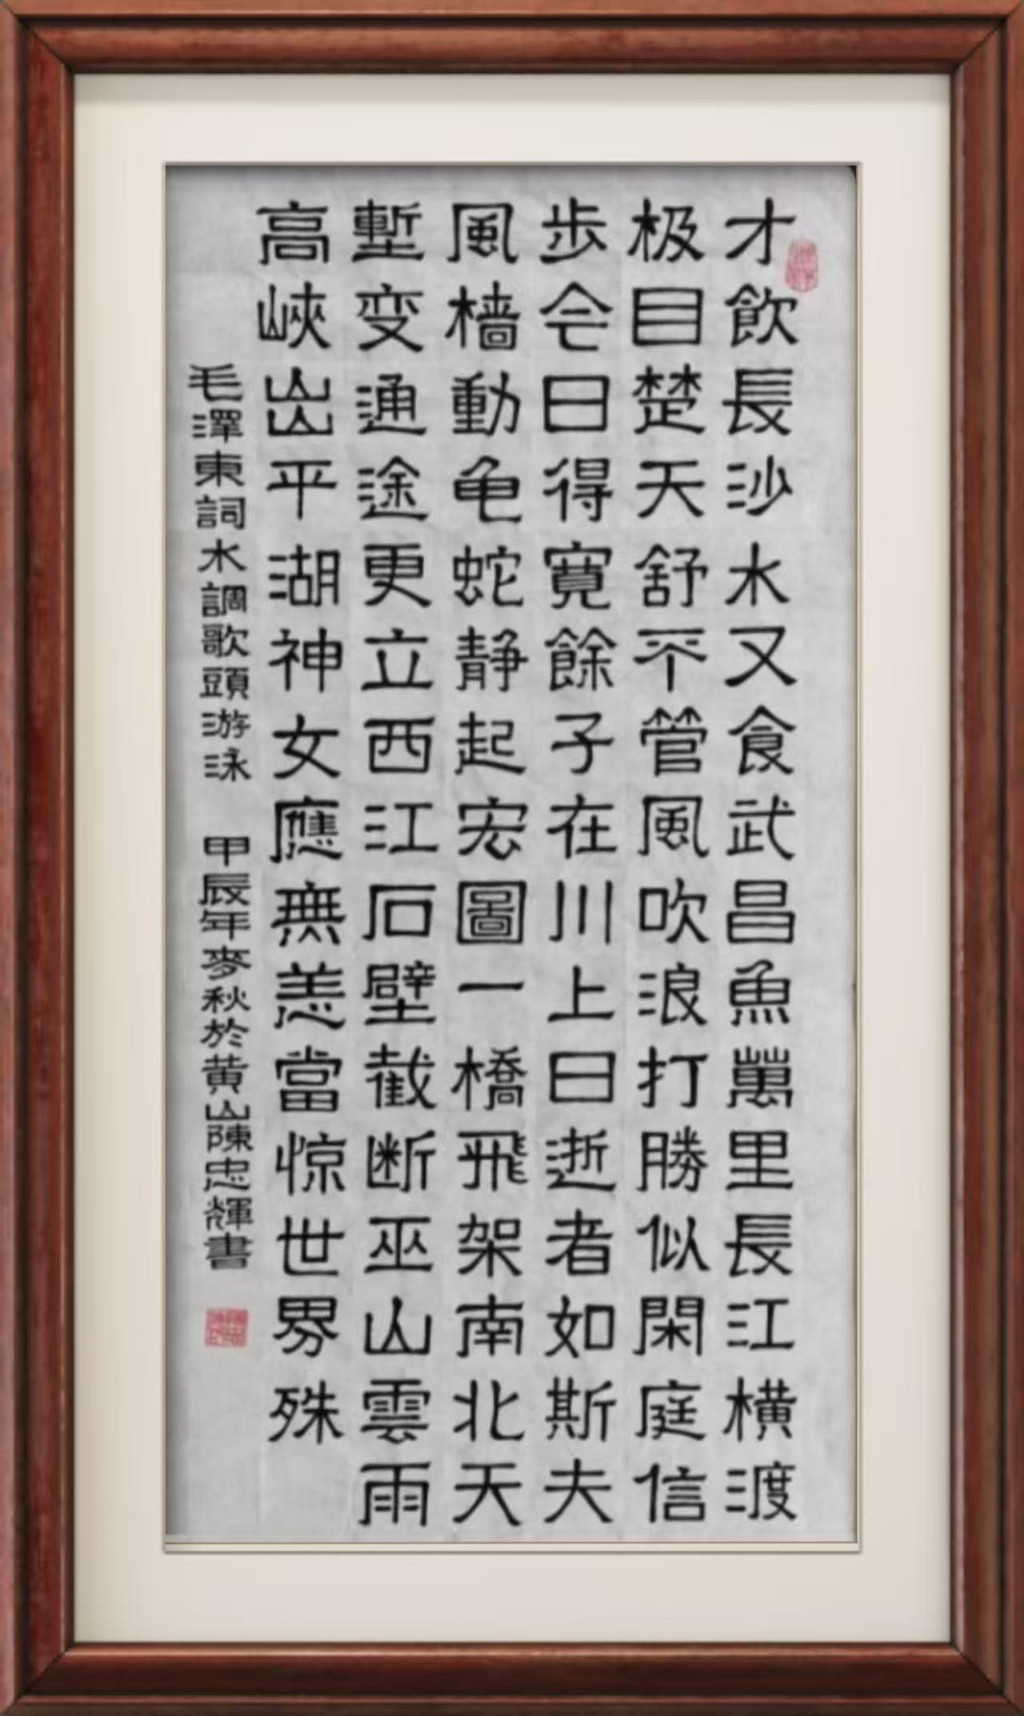 才飲長沙水又食武昌魚萬里長江橫渡
极目楚天舒不管風吹浪打勝似閑庭信
步今日得寬餘子在川上曰逝者如斯夫
風檣動龟蛇静起宏圖一橋飛架南北天
塹变通途更立西江石壁截断巫山雲雨
高峽出平湖神女應無恙當惊世界殊
毛澤東詞水調歌頭游泳 甲辰年麥秋於黃山陳忠輝書